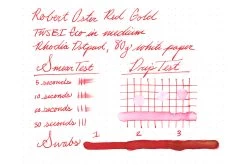 Robert Oster Red Gold
TWSBI Eco in medium
Rhodia Dotpad, 80g white paper
Smear Test Drip Test
5 seconds
10 seconds
20 seconds
30 seconds
Swabs 1 2 3